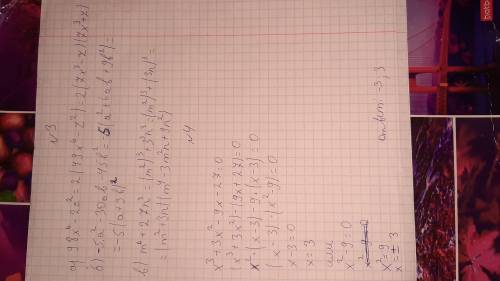 №3
а) 98x⁶ - 2z² = 2(49x⁶ - z²) = 2(7x³ - z)(7x³ + z)
б) -5a² - 30ab - 45b² = -5(a² + 6ab + 9b²) =
= -5(a + 9b)²
в) m⁶ + 27n³ = (m²)³ + 3³n³ = (m²)³ + (3n)³ =
= (m² + 3n)(m⁴ - 3m²n + 9n²)
№4
x³ + 3x² - 9x - 27 = 0
(x³ + 3x²) - (9x + 27) = 0
x² · (x - 3) - 9 · (x - 3) = 0
(x - 3) - (x² - 9) = 0
x - 3 = 0
x = 3
или
x² - 9 = 0
x² - 9 = 0
x² = 9
x = ± 3
ответ: -3; 3